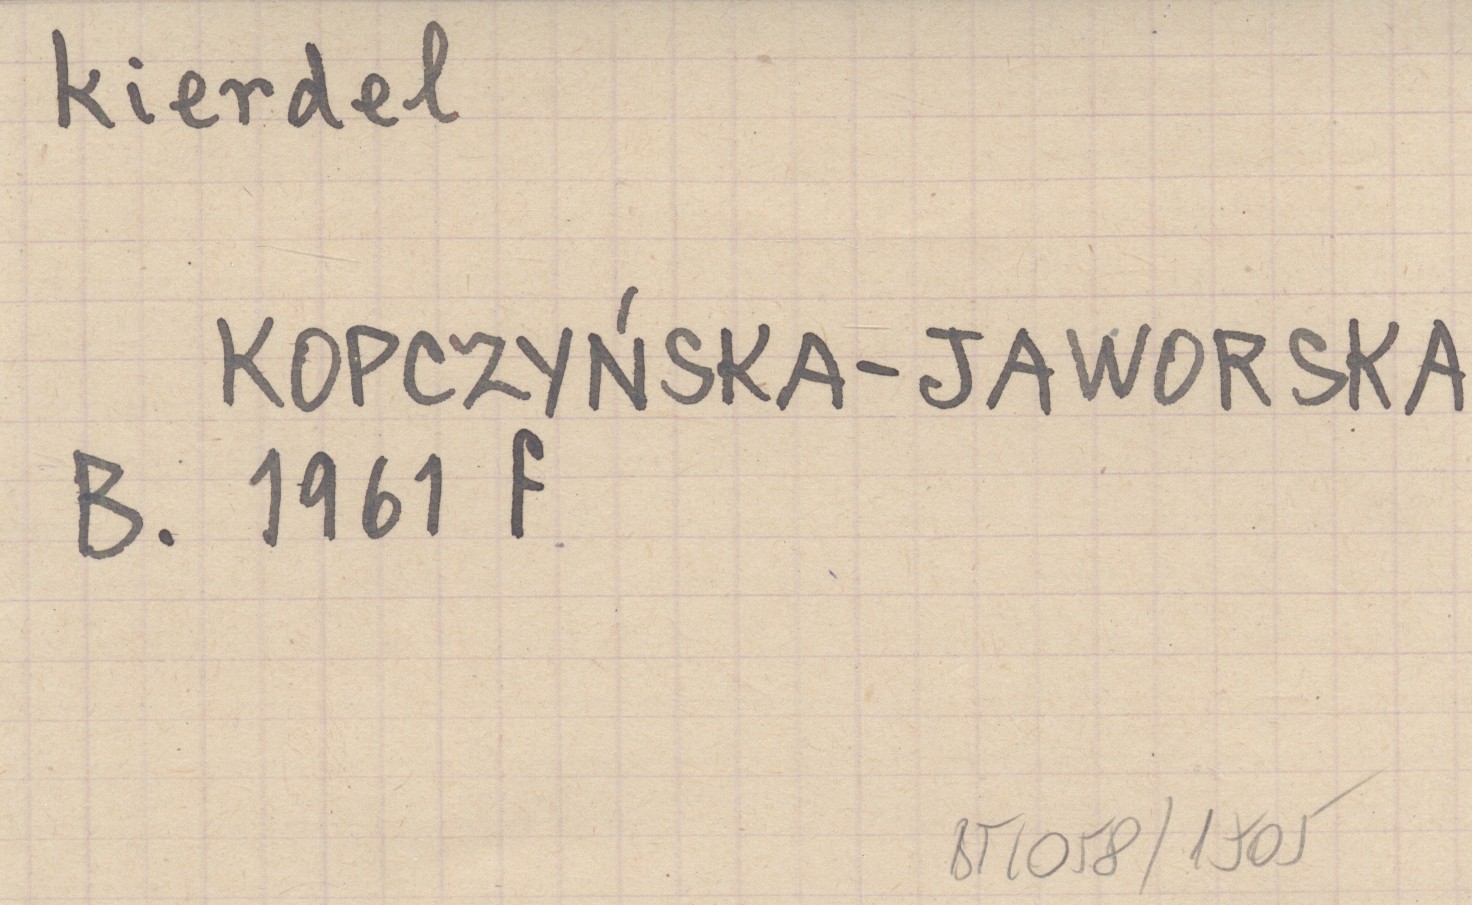 kierdel
KOPCZYŃSKA-JAWORSKA
B. 1961 f
BT1058/1505